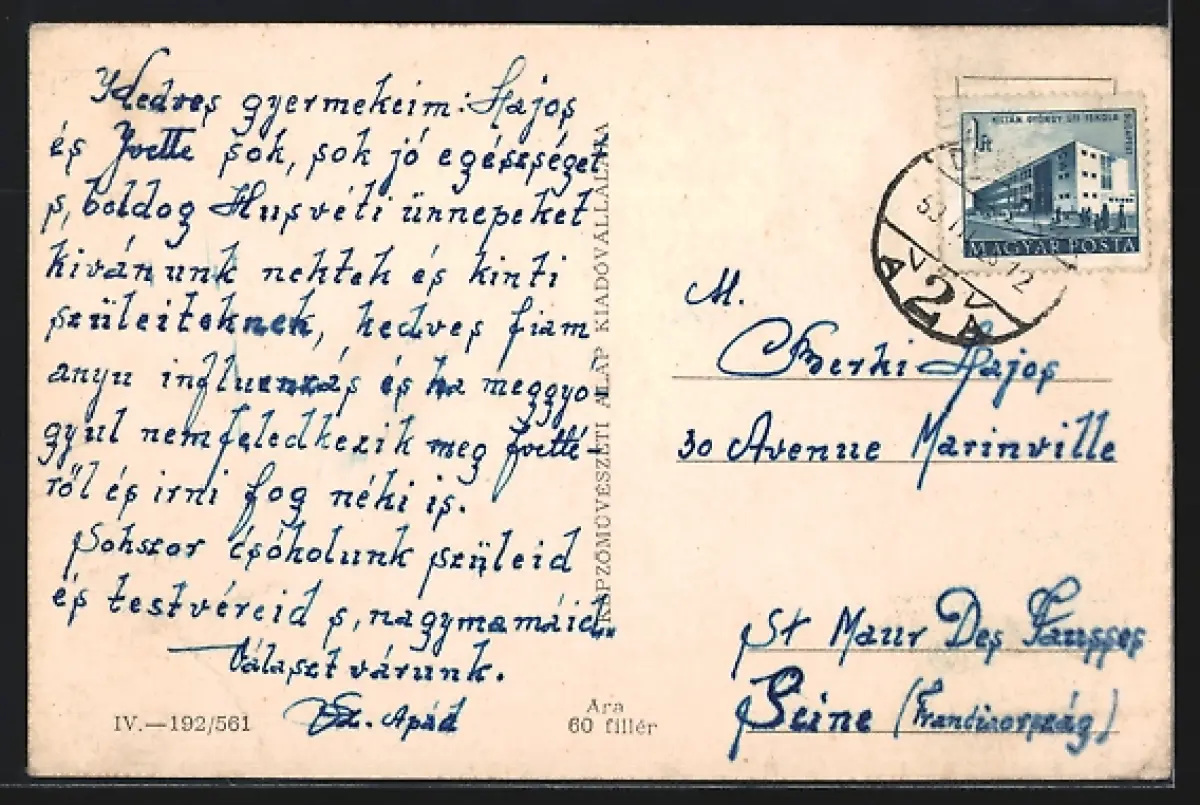 Kedves gyermekeim: Hajos
és Yvette sok, sok jó egésséget
s, boldog Husvéti ünnepeket
kivánunk nektek és kinti
szüleiteknek, kedves fiam
anyu influenzás és ha meggyó
gyul nemfeledkezik meg Yvetté-
ről és irni fog néki is.
Sokszor csókolunk szüleid
és testvéreid s, nagymamáid
Választ várunk.
Apád
IV.—192/561
Ara
60 fillér
KÉPZŐMŰVÉSZETI ALAP KIADÓVÁLLALATA
1 Ft
KILIÁN GYÖRGY UTI ISKOLA
BUDAPEST
MAGYAR POSTA
12
2
M.
Berki Hajos
30 Avenue Marinville
St Maur Des Fausses
Seine (Franciaország)